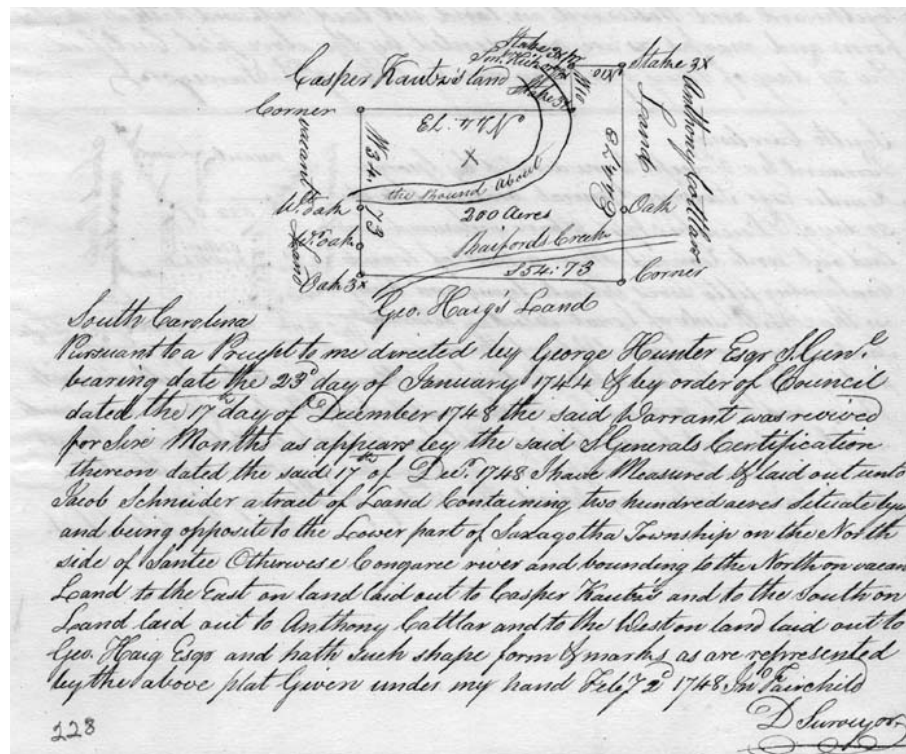 Stake 3x
Casper Kautz's land
Stake 3x
Stake 3x
Corner
N44:73
X10
Anthony Cattlar
Land
vacant
Land
W34.73
X
the Round About
200 Acres
Wt. Oak
Oak
Wt. Oak
Raiford's Creek
Oak 3x
S54:73
Corner
Geo. Haig's Land
South Carolina
Pursuant to a Precept to me directed by George Hunter Esqr S. Genl.
bearing date the 23d day of January 1744 & by order of Council
dated the 17th day of December 1748 the said Warrant was revived
for Six Months as appears by the said S Generals Certification
thereon dated the said 17th of Decr. 1748 I have Measured & laid out unto
Jacob Schneider a tract of Land Containing two hundred acres Situate
and being opposite to the Lower part of Saxagotha Township on the North
side of Santee Otherwise Congaree river and bounding to the North on vacan
Land to the East on land laid out to Casper Kautz's and to the South on
Land laid out to Anthony Cattlar and to the West on land laid out to
Geo. Haig Esqr and hath such shape form & marks as are represented
by the above plat Given under my hand Feby 2d 1748 Jno Fairchild
D Surveyor
228